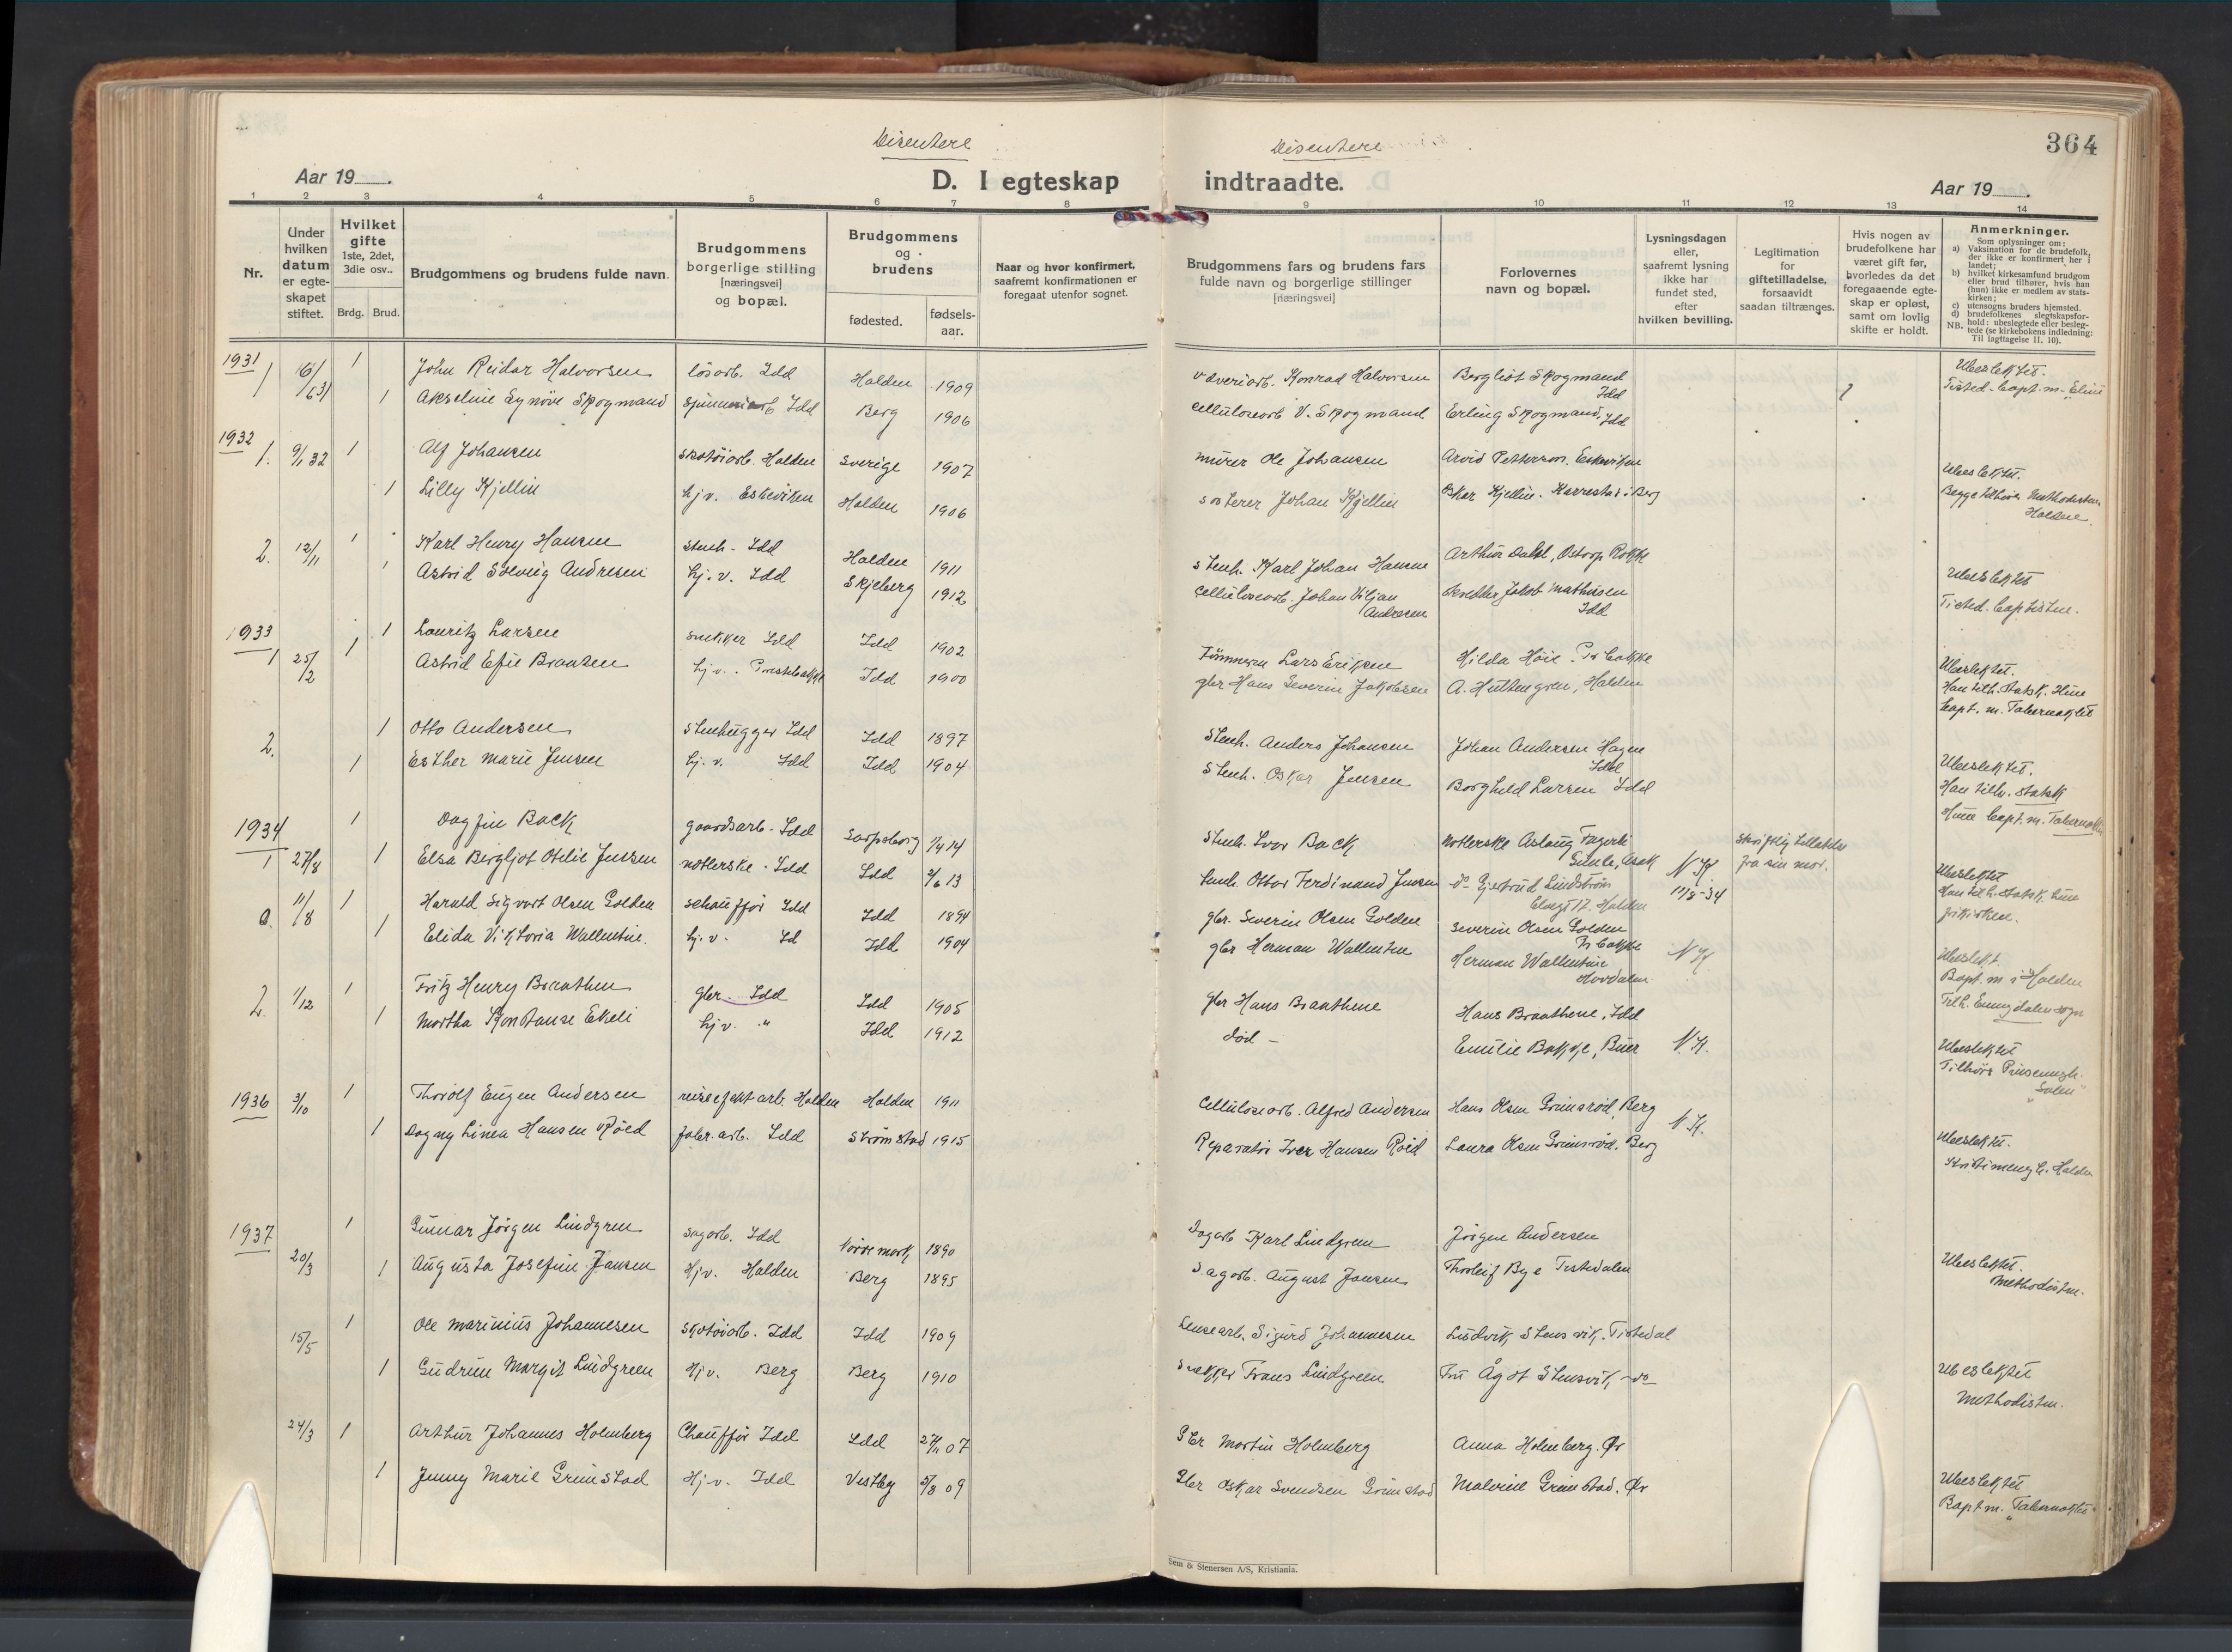 Disentere
Disentere
364
Aar 19
D. I egteskap
indtraadte.
Aar 19
1 2 3 4 5 6 7 8
9 10 11 12 13 14
Nr.
Under hvilken datum er egte-skapet stiftet.
Hvilket gifte 1ste, 2det, 3die osv..
Brdg. Brud.
Brudgommens og brudens fulde navn.
Brudgommens borgerlige stilling [næringsvei] og bopæl.
Brudgommens og brudens
fødested.
fødsels-aar.
Naar og hvor konfirmert, saafremt konfirmationen er foregaat utenfor sognet.
Brudgommens fars og brudens fars fulde navn og borgerlige stillinger [næringsvei]
Forlovernes navn og bopæl.
Lysningsdagen eller, saafremt lysning ikke har fundet sted, efter hvilken bevilling.
Legitimation for giftetilladelse, forsaavidt saadan tiltrænges.
Hvis nogen av brudefolkene har været gift før, hvorledes da det foregaaende egte-skap er opløst, samt om lovlig skifte er holdt.
Anmerkninger.
Som oplysninger om:
a) Vaksination for de brudefolk, der ikke er konfirmert her i landet;
b) hvilket kirkesamfund brudgom eller brud tilhører, hvis han (hun) ikke er medlem av stats-kirken;
c) utensogns bruders hjemsted.
d) brudefolkenes slegtskapsfor-hold: ubeslegtede eller besleg-tede (se kirkebokens indledning: Til iagttagelse II. 10).
NB.
1931
1 1 John Reidar Halvorsen løsarb. Idd Halden 1909 Konrad Halvorsen Bergliot Skogmand Idd Ubeslektet.
1 Akseline Synøve Skogmand Idd Berg 1906 celluloseorb V. Skogmand Erling Skogmand, Idd
1932
1. 9/1 32 1 Alf Johansen skotøiarb. Halden Sverige 1907 murer Ole Johansen Arvid Petterson. Eskeviken Ubeslektet.
1 Lilly Kjellin hj v. Eskeviken Halden 1906 Johan Kjellin Oskar Kjellin. i Berg Begge tilhører Methodistm. Halden.
2. 12/11 1 Karl Henry Hansen stenh. Idd Halden 1911 stenh. Karl Johan Hansen Arthur Dahl, Rokke Ubeslektet
1 Astrid Solveig Andresen hj. v. Idd Skjeberg 1912 celluloseorb. Johan Viljan Andresen Jakob Mathisen Idd Tisted. baptistm.
1933
1 25/2 1 1 Lauritz Larsen snekker Idd Idd 1902 Tømmerm Lars Eriksen Hilda Høie. Pr bakke Ubeslektet.
Astrid Efie Brausen hj v. Prestebakke Idd 1900 gbr Hans Severin Jakobsen A. Hultengren, Halden Han tilh. statsk. Hun bapt. m. Tabernaklet
2. 1 Otto Andersen Stenhugger Idd Idd 1897 Stenh. Anders Johansen Johan Andersen Hagen Idd Ubeslektet.
1 Esther Marie Jensen hj. v. Idd Idd 1904 Stenh. Oskar Jensen Borghild Larsen Idd Han tilh. statsk
1934
1 27/8 1 Dagfin Back gaardsarb. Idd Sarpsborg 14 Stenh. Ivar Back Aslaug Skriftlig tillatelse fra sin mor.
1 Elsa Bergljot Otelie Jensen Idd Idd 2/6 13 Stenh. Ottar Ferdinand Jensen do Gjertrud Lindstrøm 17. Halden N.K. 11/8-34 Ubeslektet
11/8 1 Harald Sigvart Olsen Golden schauffør Idd Idd 1894 gbr. Severin Olsen Golden Severin Olsen Golden Pr bakke
1 Elida Viktoria Wallentin. hj. v. Id Idd 1904 gbr Herman Wallentin Herman Wallentin N.K. Ubeslekt.
Bapt. m i Halden
2. 1/12 1 Fritz Henry Braathen gbr. Idd Idd 1905 gbr Hans Braathene Hans Braathene, Idd
1 Martha Konstanse Ekeli hj v. " Idd 1912 død - Emilie Bakke, Buer N.K. Ubeslektet
1936
3/10 1 Thorolf Eugen Andersen reiseefektarb. Halden Halden 1911 Celluloseorb. Alfred Andersen Hans Olsen Grimsrød, Berg N.K.
1 Dagny Linea Hansen Røed fabr. arb. Idd Strømstad 1915 Reparatør Iver Hansen Røid Laura Olsen Grimsrød. Berg Ubeslektet.
1937
20/3 1 Gunnar Jørgen Lindgren sagarb. Idd Nordremark 1890 Sagarb Karl Lindgren Jørgen Andersen
1 Augusta Josefine Jansen Hjv. Halden Berg 1895 Sagarb. August Jansen Thorleif Bye Tistedalen Ubeslektet. Methodistm.
15/5 1 Ole Marinius Johannesen skotøiarb. Idd Idd 1909 Sigurd Johannesen Ludvik Stensvik. Tistedal
1 Gudrun Margit Lindgreen Hjv. Berg Berg 1910 Snekker Frans Lindgreen Fru Ågot Stensvik -do- Ubeslektet Methodistm.
24/3 1 Arthur Johannes Holmberg Chauffør Idd Idd 27/11 07 Gbr Martin Holmberg Anna Holmberg. Ør
1 Jenny Marie Grimstad Hj v. Idd Vestby 2/8 09 Gbr Oskar Svendsen Grimstad Malvine Grimstad. Ør Ubeslektet
Bapt m. Tabernaklet
Sem & Stenersen A/S, Kristiania.